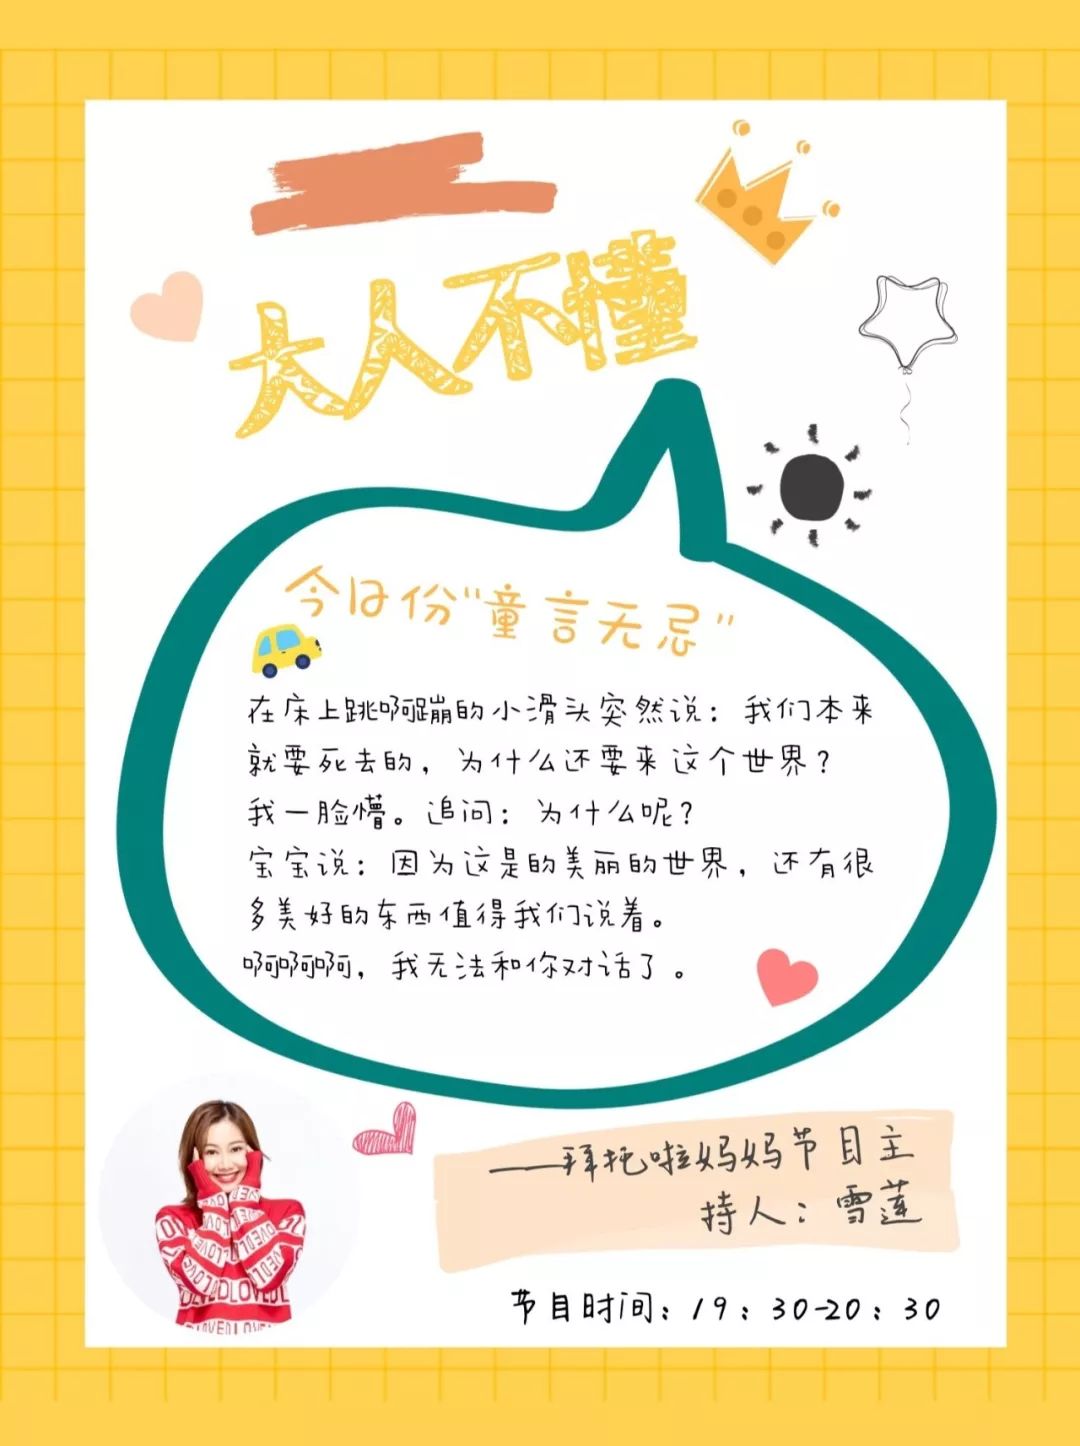 大人不懂
今日份“童言无忌”
在床上跳啊蹦的小滑头突然说：我们本来
就要死去的，为什么还要来这个世界？
我一脸懵。追问：为什么呢？
宝宝说：因为这是的美丽的世界，还有很
多美好的东西值得我们说着。
啊啊啊，我无法和你对话了。
——拜托啦妈妈节目主
持人：雪莲
节目时间：19：30-20：30